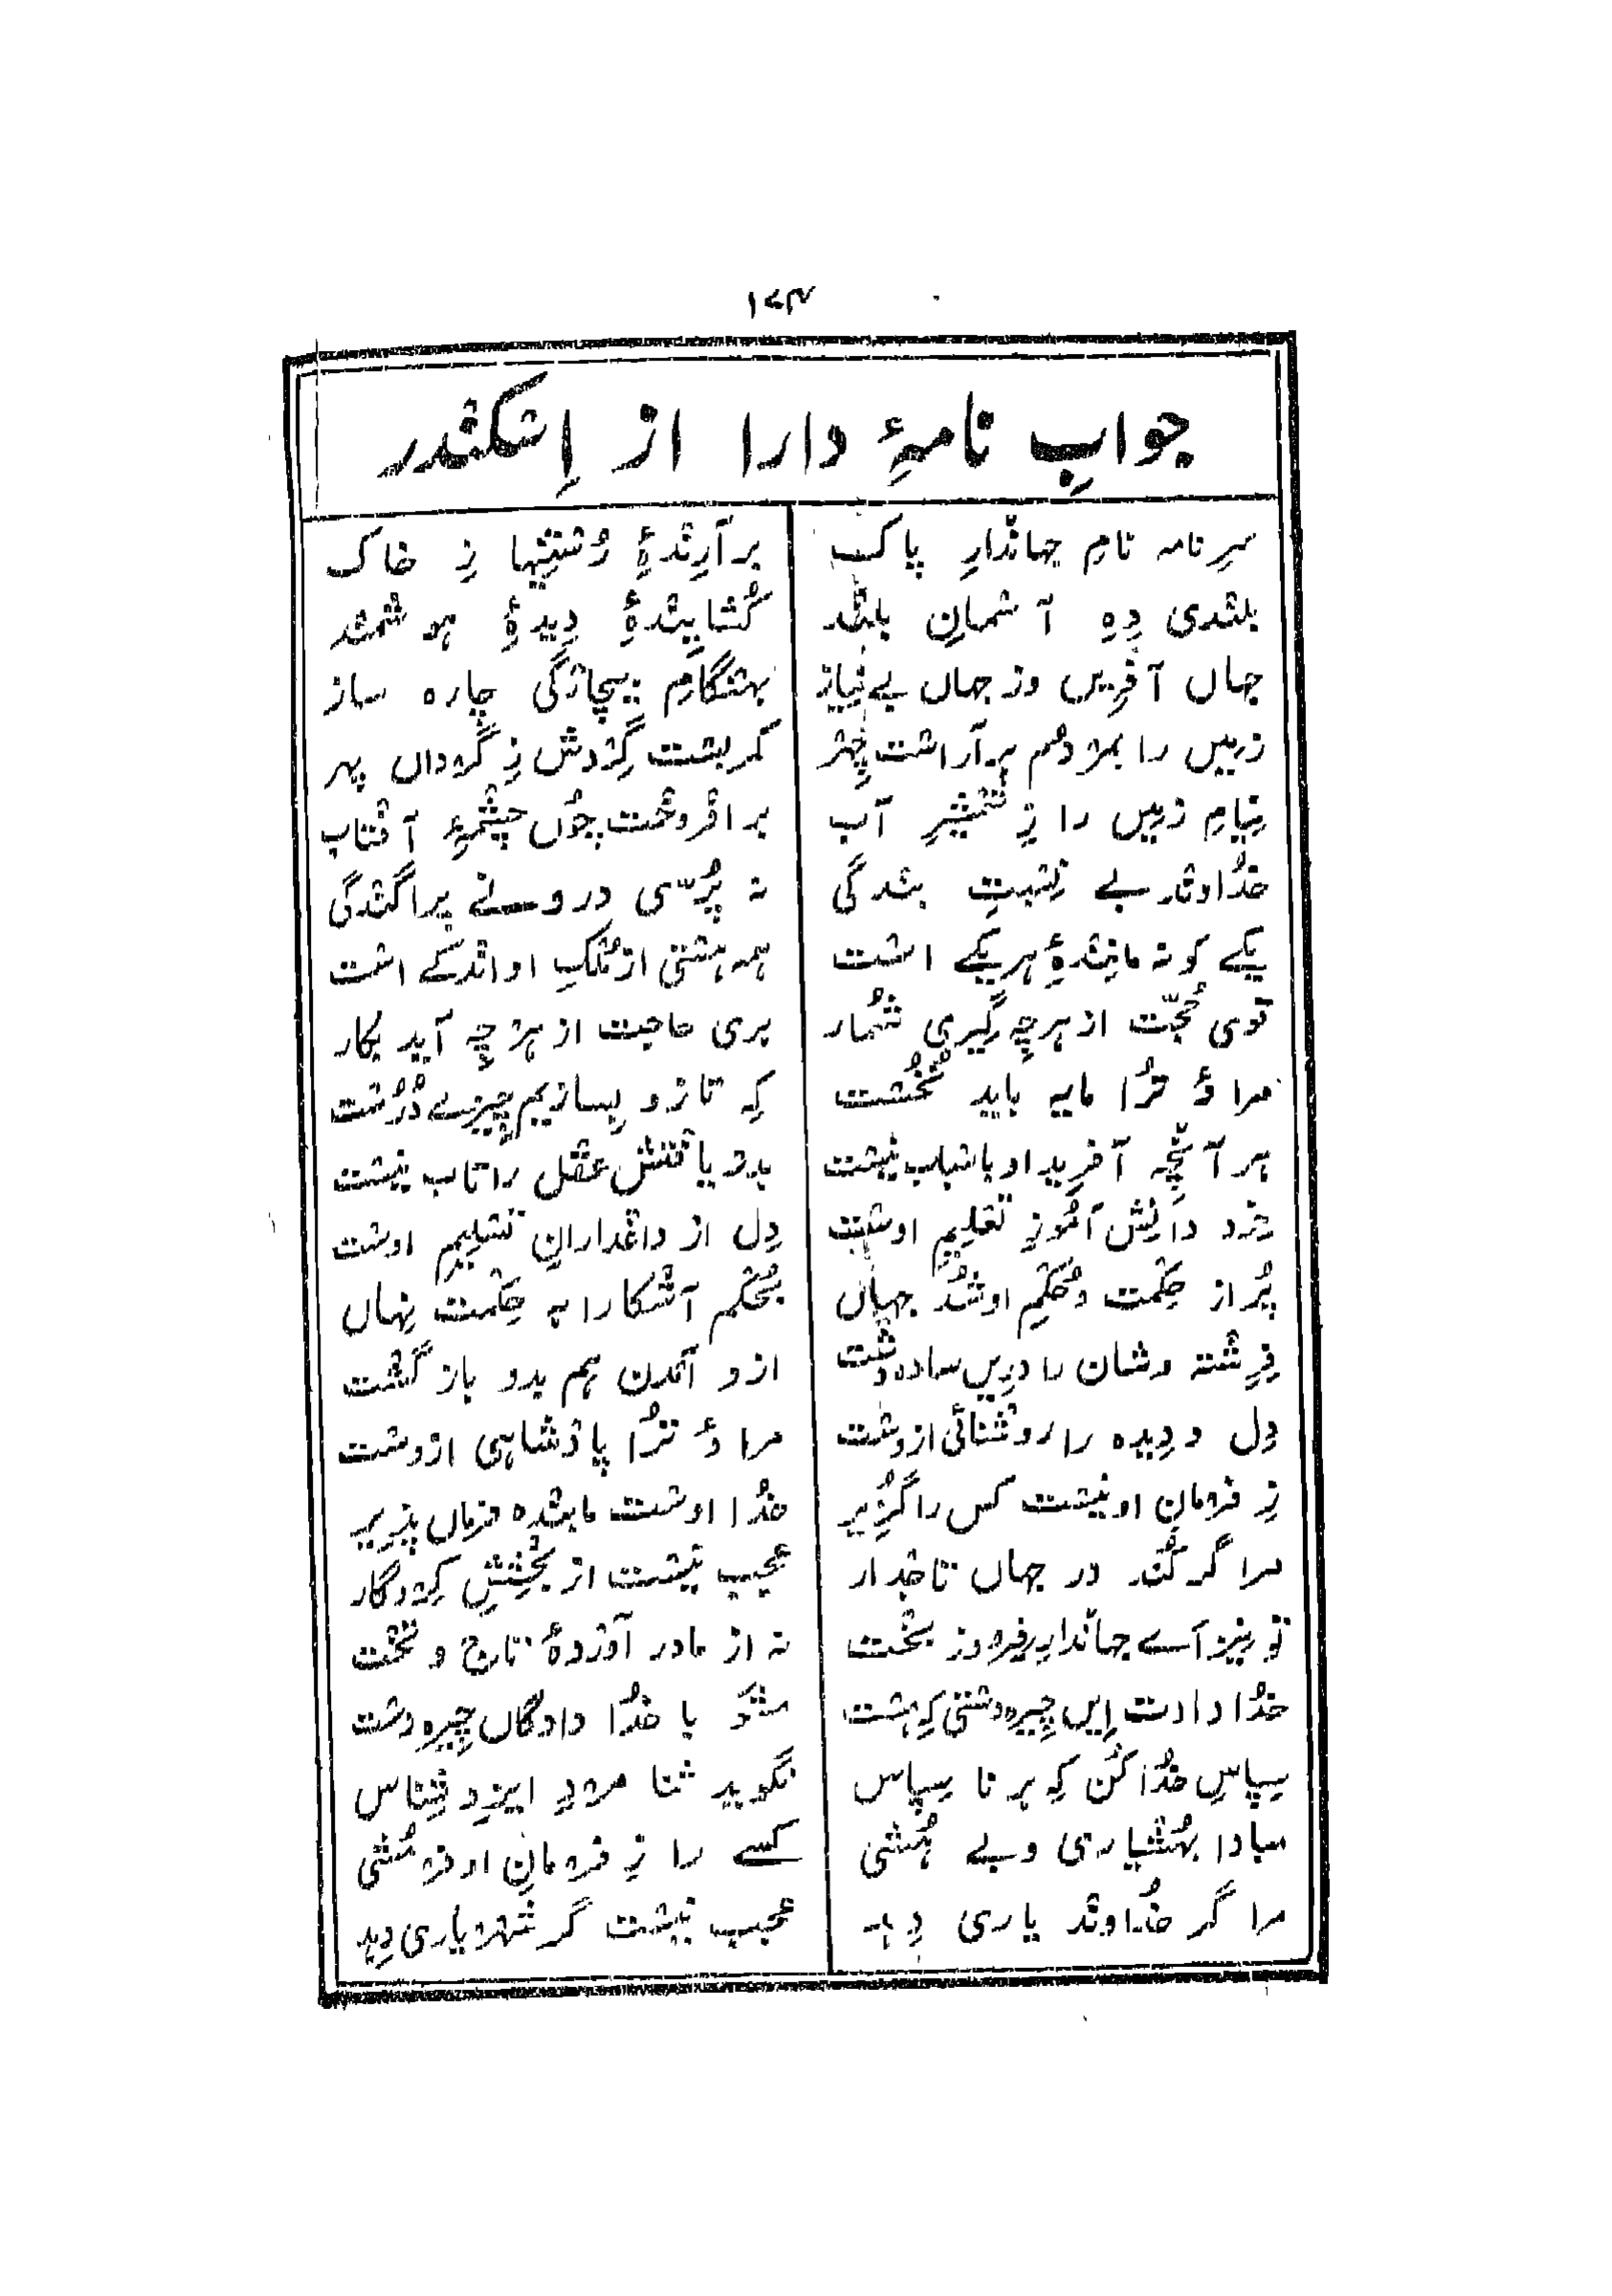 ۱۷۴
جوابِ نامۂِ دارا از اِسکندر
سرِ نامہ نامِ جہاندارِ پاک برآرندۂِ رُستنیہا زِ خاک
بلندی دِہِ آسمانِ بلند گُشایندۂِ دِیدۂِ ہوشمند
جہاں آفریں وز جہاں بے نیاز بہنگامِ بیچارگی چارہ ساز
زمیں را بمردم برآراست چہر کمر بست گِردش زِ گرداں سپہر
نیامِ زمیں را زِ شمشیرِ آب برافروخت چوں چشمۂِ آفتاب
خُداوندِ بے نِسبتِ بندگی نہ پُرسی دِروے نے پراگندگی
یکے کو نہ مانندۂِ ہر یکے است ہمہ ہستی از مُلکِ او اندکے است
قوی حُجّت از ہرچہ گیری شُمار بری حاجت از ہر چہ آید بکار
مرا ؤ تُرا مایہ باید نخُست کہ تا زو بسازیم چیزے دُرُست
ہر آنچہ آفرید او باسباب نیست بدو یافتنش عقل را تاب نیست
خِرد دانِش آموزِ تعلیمِ اوست دِل از داغدارانِ تسلیمِ اوست
پُر از حِکمت و حُکمِ او شُد جہاں بحُکم آشکارا بہ حِکمت نِہاں
فرِشتہ وشان را دریں سادہ دشت ازو آمدن ہم بدو باز گشت
دِل و دِیدہ را روشنائی ازوست مرا ؤ تُرا پادشاہی ازوست
زِ فرمانِ او نیست کس را گُزیر خُدا اوست ما بندہ فرماں پذیر
مرا گر کُند در جہاں تاجدار عجب نیست از بخشِشِ کِردگار
تو نیز اے جہاندارِ فیروز بخت نہ از مادر آوردۂ تاج و تخت
خُدا دادت اِیں چیرہ دستی کِہ ہست مشَو با خُدا دادگاں چیرہ دست
سپاسِ خُدا کُن کِہ بر نا سپاس نگوید ثنا مردِ ایزد شِناس
مبادا بہُشیاری و بے ہُشی کسے را زِ فرمانِ او فرمُشی
مرا گر خُداوند یاری دِہد عجب نیست گر شہریاری دِہد